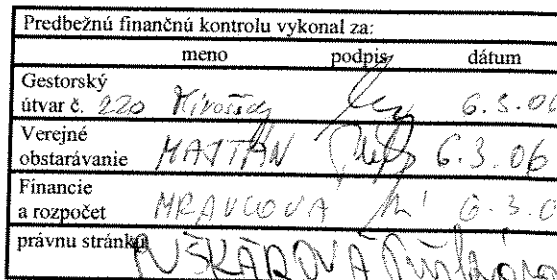 Predbežnú finančnú kontrolu vykonal za:
meno podpis dátum
Gestorský
útvar č. 220 6.3.06
Verejné
obstarávanie MAJTÁN 6.3.06
Financie
a rozpočet MRAVCOVÁ 6.3.0
právnu stránku PUŠKÁROVÁ